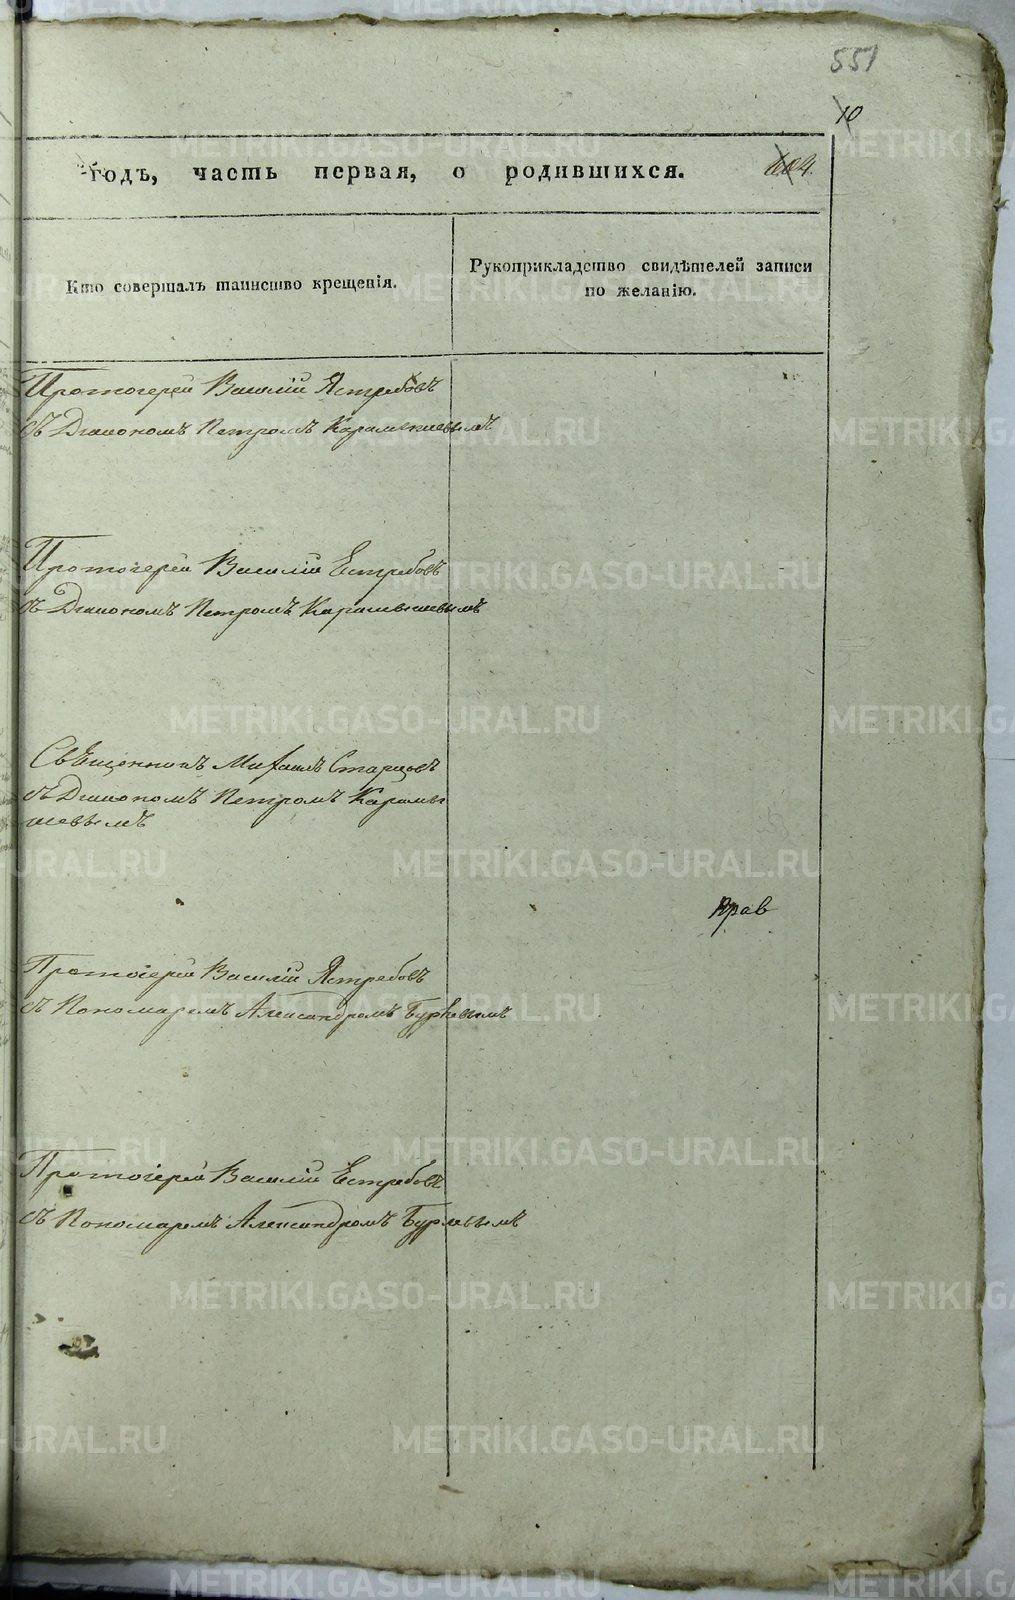 551
10
годъ, часть первая, о родившихся.
Кто совершалъ таинство крещенія.
Рукоприкладство свидѣтелей записи
по желанію.
Протоіерей Василій Ястребовъ
съ Діакономъ Петромъ Карамышевымъ
Протоіерей Василій Естребовъ
съ Діакономъ Петромъ Карамышевымъ
Священникъ Михаилъ Старцовъ
съ Діакономъ Петромъ Карамы
шевымъ
Прав
Протоіерей Василій Ястребовъ
съ Пономаремъ Александромъ
Протоіерей Василій Естребовъ
съ Пономаремъ Александромъ
METRIKI.GASO-URAL.RU